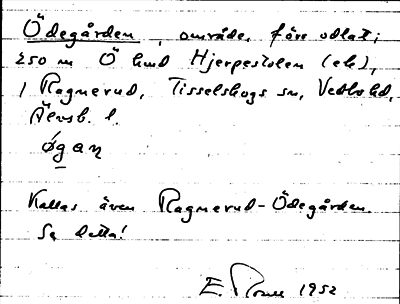 Ödegården, område, förr odlat;
250 m Ö hmd Hjerpestolen (ek),
i Ragnerud, Tisselskogs sn, Vedbo hd,
Älvsb. l.
øgaɳ
Kallas även Ragnerud-Ödegården.
Se detta!
E. 1952